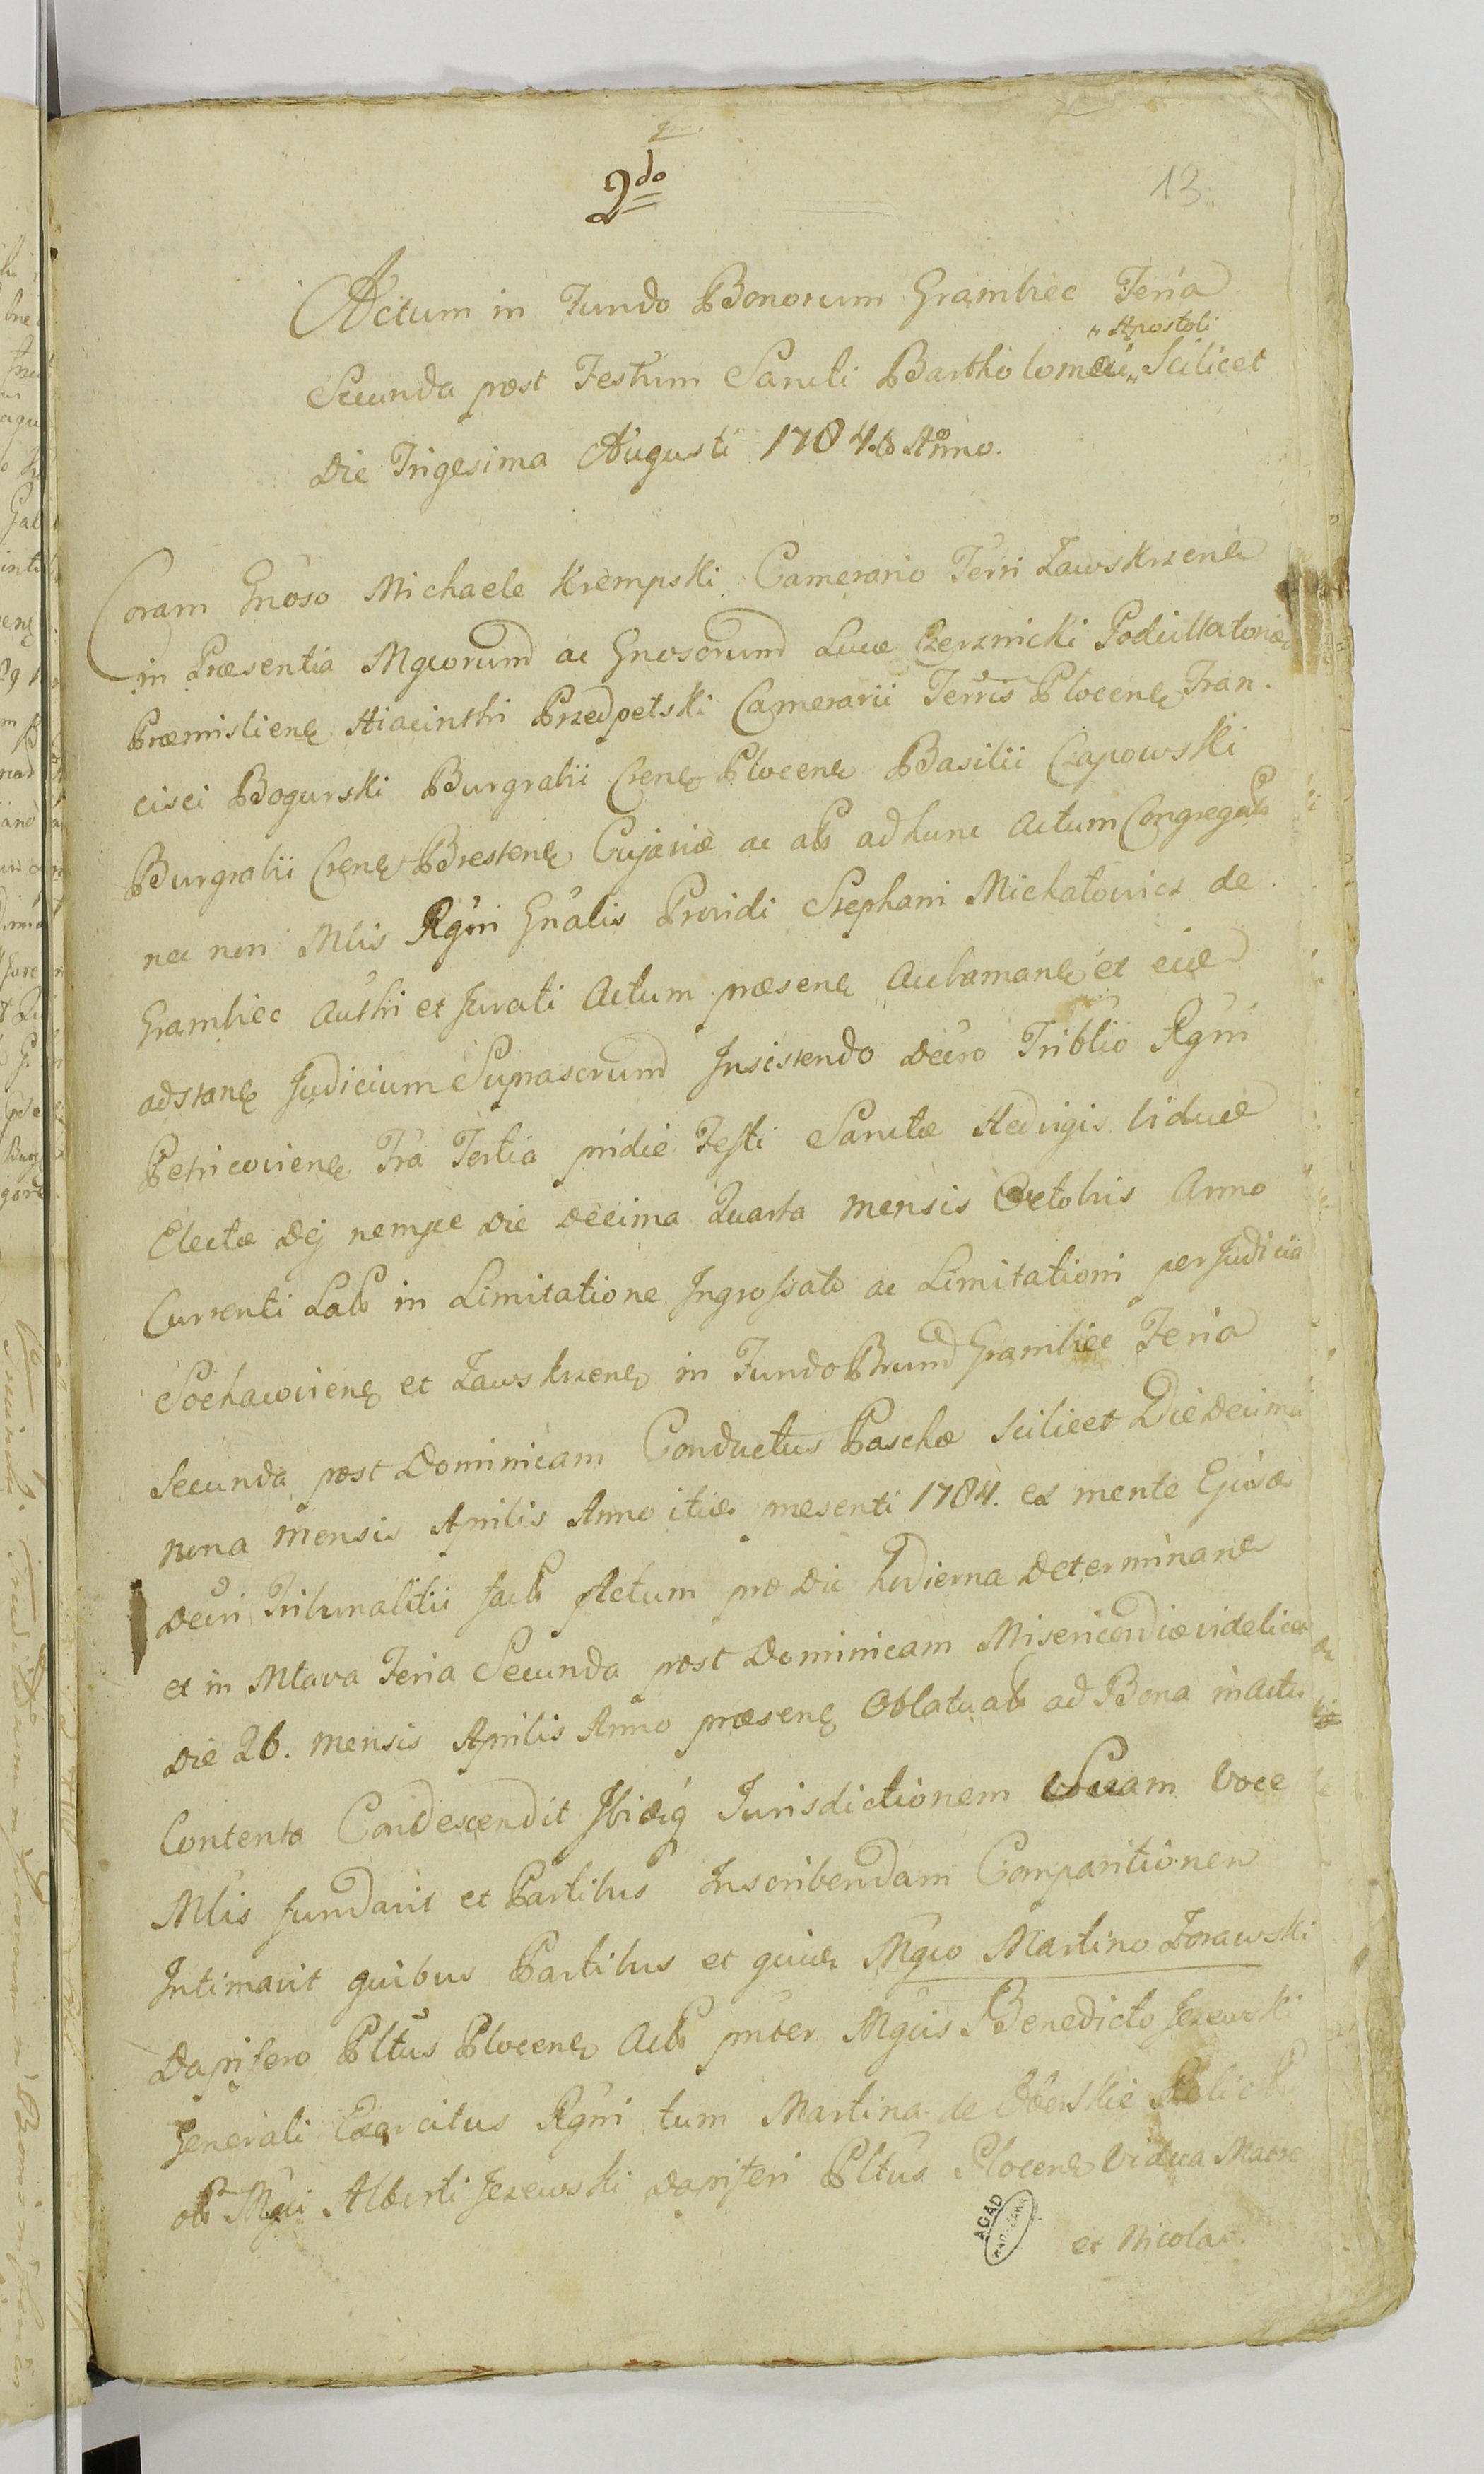 2do
13.
Actum in Fundo Bonorum Grambiec Feria
" Apostoli
Secunda post Festum Sancti Bartholomæi " Scilicet
Die Trigesima Augusti 1784to Anno.
Coram Gnoso Michaele Krempski Camerario Terri Zawskrzens
in Præsentia Mgcorum ac Gnosorum Lucæ Czerznicki
Præmisliens Hiacinthi Przedpełski Camerarii Terris Plocens Fran.
cisci Bogurski Burgrabii Crens Plocens Basilii Czapowski
Burgrabii Crens Brestens Cujaviæ ac ab ad hunc Actum Congregato
nec non Mlis Rgni Gnalis Providi Stephani Michałowicz de
Grambiec Authi et Jurati Actum præsens Aclamans et eice
adstans Judicium Suprascrum Insistendo Decro Triblio Rgni
Petricoviens Fra Tertia pridie Festi Sanctæ Hedvigis Viduæ
Electæ Dej nempe Die Decima Quarta mensis Octobris Anno
Currenti Lato in Limitatione Ingrossato ac Limitationi per Judicia
Sochacoviens et Zawskrzens in Fundo Brum Grambiec Feria
Secunda post Dominicam Conductus Paschæ Scilicet Die Decima
nona mensis Aprilis Anno itidem præsenti 1784. ex mente Ejusdem
Decri Tribunalitii facto Actum pro Die hodierna Determinans
et in Mlava Feria Secunda post Dominicam Misericordiæ videlicet
Die 26. mensis Aprilis Anno præsens Oblatuato ad Bona in Actu
Contenta Condescendit Ibidq Jurisdictionem Suam Voce
Mlis fundavit et Partibus Inscribendam Comparitionem
Intimavit quibus Partibus et quidem Mgco Martino Zorawski
Dapifero Pltus Plocens Acto pnter Mgcis Benedicto Jezewski
Generali Exercitus Rgni tum Martina de Relicta
ob Mgci Alberti Jezewski Dapiferi Pltus Plocens Vidua Matre
et Nicolao.
AGAD